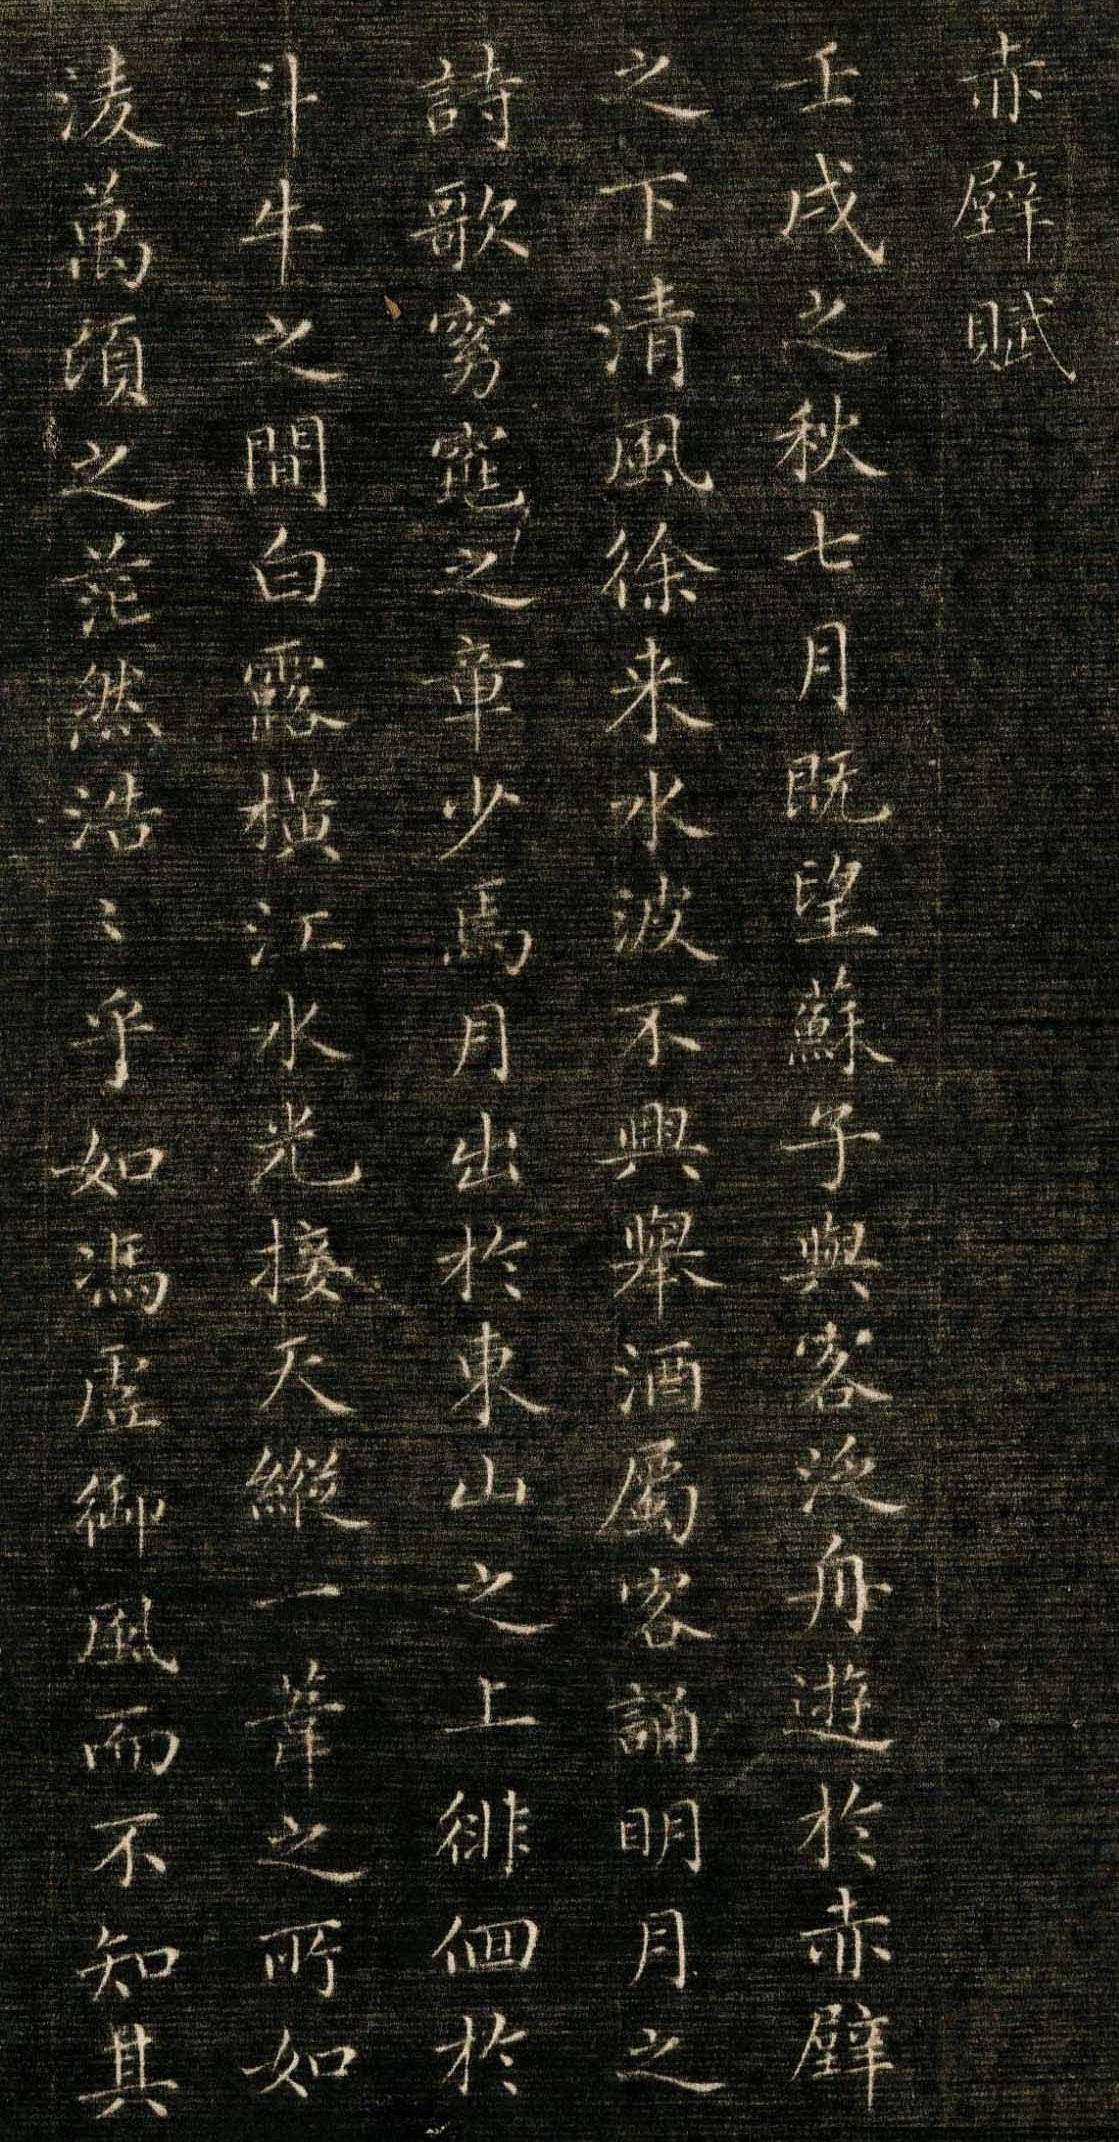 赤壁賦
壬戌之秋七月既望蘇子與客泛舟遊於赤壁
之下清風徐来水波不興舉酒屬客誦明月之
詩歌窈窕之章少焉月出於東山之上徘佪於
斗牛之間白露横江水光接天縱一葦之所如
淩萬頃之茫然浩〻乎如馮虛御風而不知其